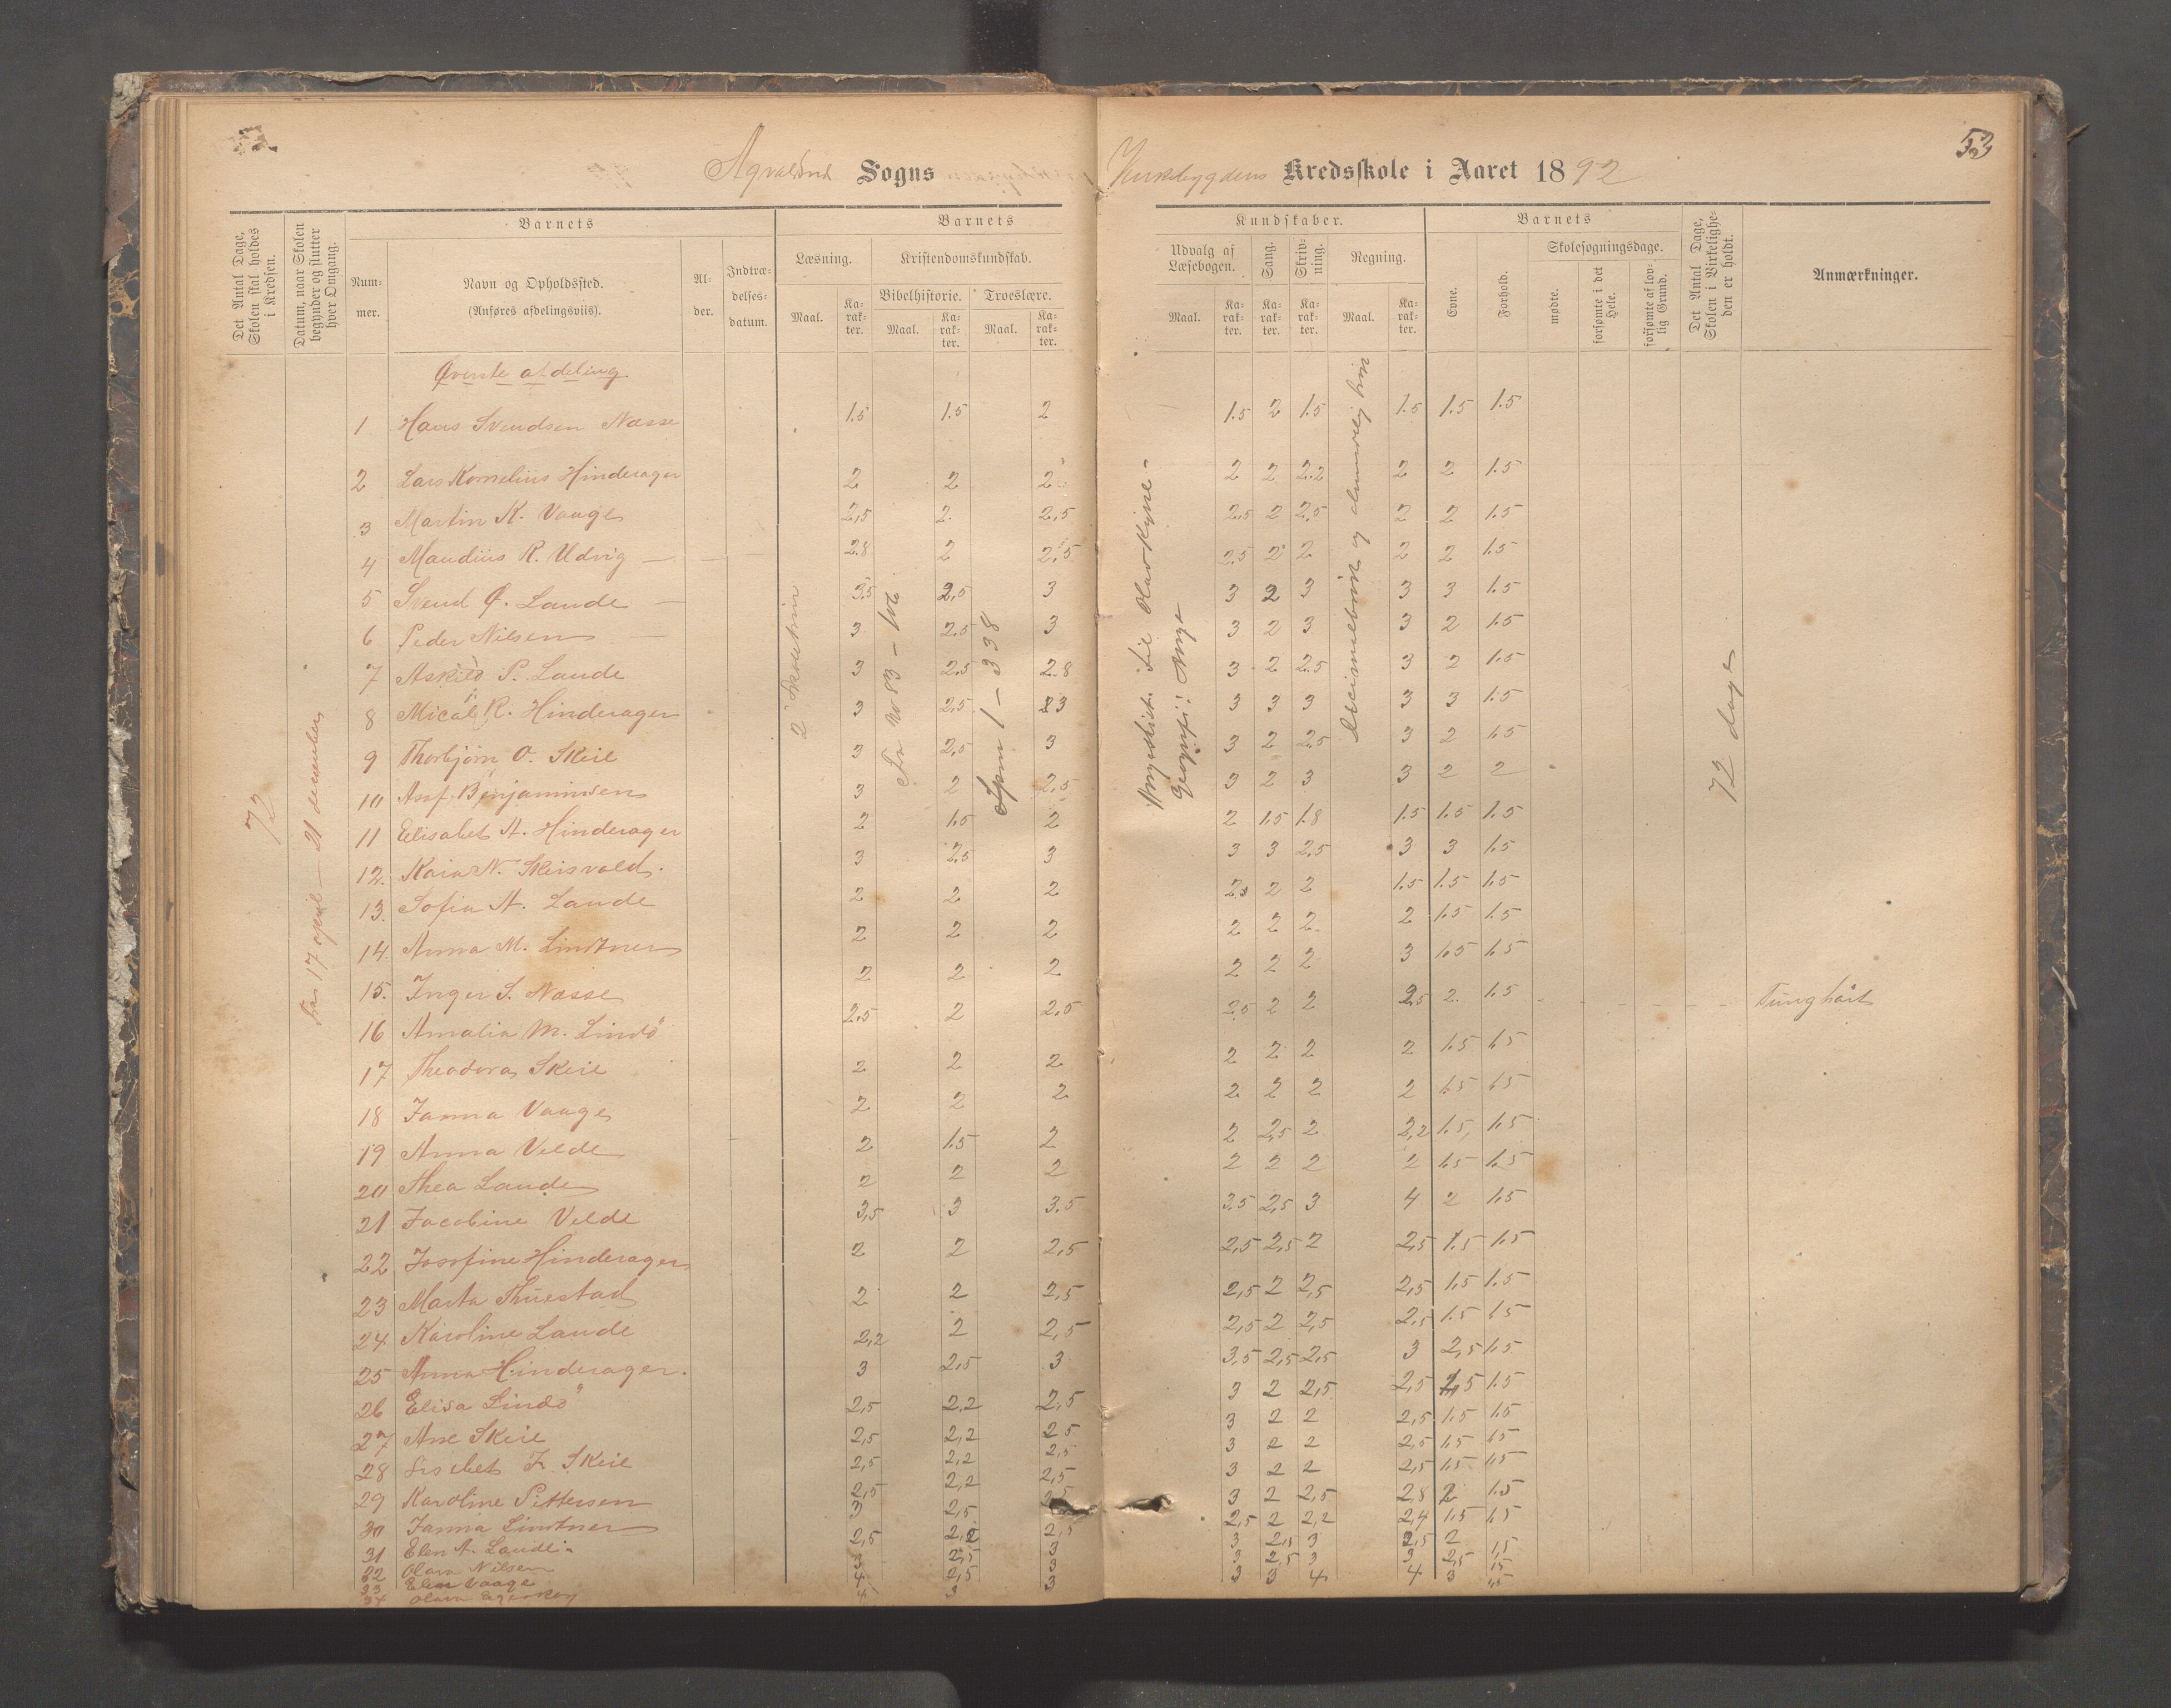 53
Sogns
Kredsskole i Aaret 1892
Det Antal Dage, Skolen skal holdes i Kredsen.
Datum, naar Skolen begynder og slutter hver Omgang.
Barnets
Nummer.
Navn og Opholdssted.
(Anføres afdelingsviis).
Alder.
Indtrædelsesdatum.
Barnets
Kundskaber.
Læsning.
Maal.
Karakter.
Kristendomskundskab.
Bibelhistorie.
Maal.
Karakter.
Troeslære.
Maal.
Karakter.
Udvalg af Læsebogen.
Maal.
Karakter.
Sang.
Karakter.
Skrivning.
Karakter.
Regning.
Maal.
Karakter.
Barnets
Evne.
Forhold.
Skolesøgningsdage.
mødte.
forsømte i det Hele.
forsømte af lovlig Grund.
Det Antal Dage, Skolen i Virkeligheden er holdt.
Anmærkninger.
Øverste afdeling
72
Fra 17 april – 21 december
2 Skoletrin
Fra No 83 – 106
Spm 1 – 338
Geografi: Norge
72 dage
1 Hans Svendsen Næsse 1.5 1.5 2 1.5 2 1.5 1.5 1.5 1.5
2 Lars Kornelius Hinderager 2 2 2 2 2 2.2 2 2 1.5
3 Martin K. Vaage 2,5 2 2,5 2,5 2 2,5 2 2 1.5
4 Maudius R. Udvig 2.8 2 2,5 2.5 2 2 2 2 1.5
5 Svend Ø. Lande 3.5 2,5 3 3 2 3 3 3 1.5
6 Peder Nilsen 3 2.5 3 3 2 3 3 2 1.5
7 Askild P. Lande 3 2.5 2.8 3 2 2.5 3 2 1.5
8 Micál R. Hinderager 3 2,5 3 3 3 3 3 3 1.5
9 Thorbjørn O. Skeie 3 2,5 3 3 2 2.5 3 2 1.5
10 Benjaminsen 3 2 2,5 3 2 3 3 2 2
11 Elisabet A. Hinderager 2 1.5 2 2 1.5 1.8 1.5 1.5 1.5
12. Kaia N. Skeisvold. 3 2,5 3 3 3 2,5 3 3 1.5
13. Sofia A. Lande 2 2 2 2.5 2 2 1.5 1.5 1.5
14. Anna M. Lindtner 2 2 2 2 2 2 2 1.5 1.5
15. Inger S. Næsse 2 2 2 2 2 2 3 1.5 1.5
16 Amalia M. Lindö 2.5 2 2.5 2,5 2 2 2,5 2. 1.5 Tunghört
17 Theodora Skeie 2 2 2 2 2 2 2 1.5 1.5
18 Janna Vaage 2 2 2 2 2 2 2 1.5 1.5
19 Anna Velde 2 1.5 2 2 2,5 2 2,2 1.5 1.5
20 Thea Lande 2 2 2 2 2 2 2 1.5 1.5
21 Jacobine Velde 3,5 3 3.5 3.5 2,5 3 4 2 1.5
22 Josefine Hinderager 2 2 2,5 2,5 2,5 2 2,5 1.5 1.5
23 Marta Thuestad 2 2 2,5 2,5 2 2,5 2,5 1.5 1.5
24 Karoline Lande 2,2 2 2,5 2,5 2 2,5 2,5 1.5 1.5
25 Anna Hinderager. 3 2,5 3 3,5 2,5 2,5 3 2,5 1.5
26 Elisa Lindö 2,5 2,2 2,5 3 2 2,5 2,5 1.5
27 Ane Skeie 2,5 2,2 2,5 3 2 2 2,5 1.5 1.5
28 Lisebet J. Skeie 2,5 2,2 2,5 3 2 2 2,5 1.5 1.5
29 Karoline Pettersen 2,5 2,2 2,5 3 2 2 2,5 1.5 1.5
30 Janna Lindtner 3 2,5 3 2 2,5 2,8 2 1.5
31 Elen A. Lande 2,5 2,2 2,5 2,5 2 2,2 2,4 1.5 1.5
32 Olava Nilsen 3 2,5 3 3 2,5 3 2,5 2
33 Elen Vaage 4 2,5 3 3 2,5 3 3 2,5 1,5
34 Olava 4 3 3 3 3 4 4 3 1.5